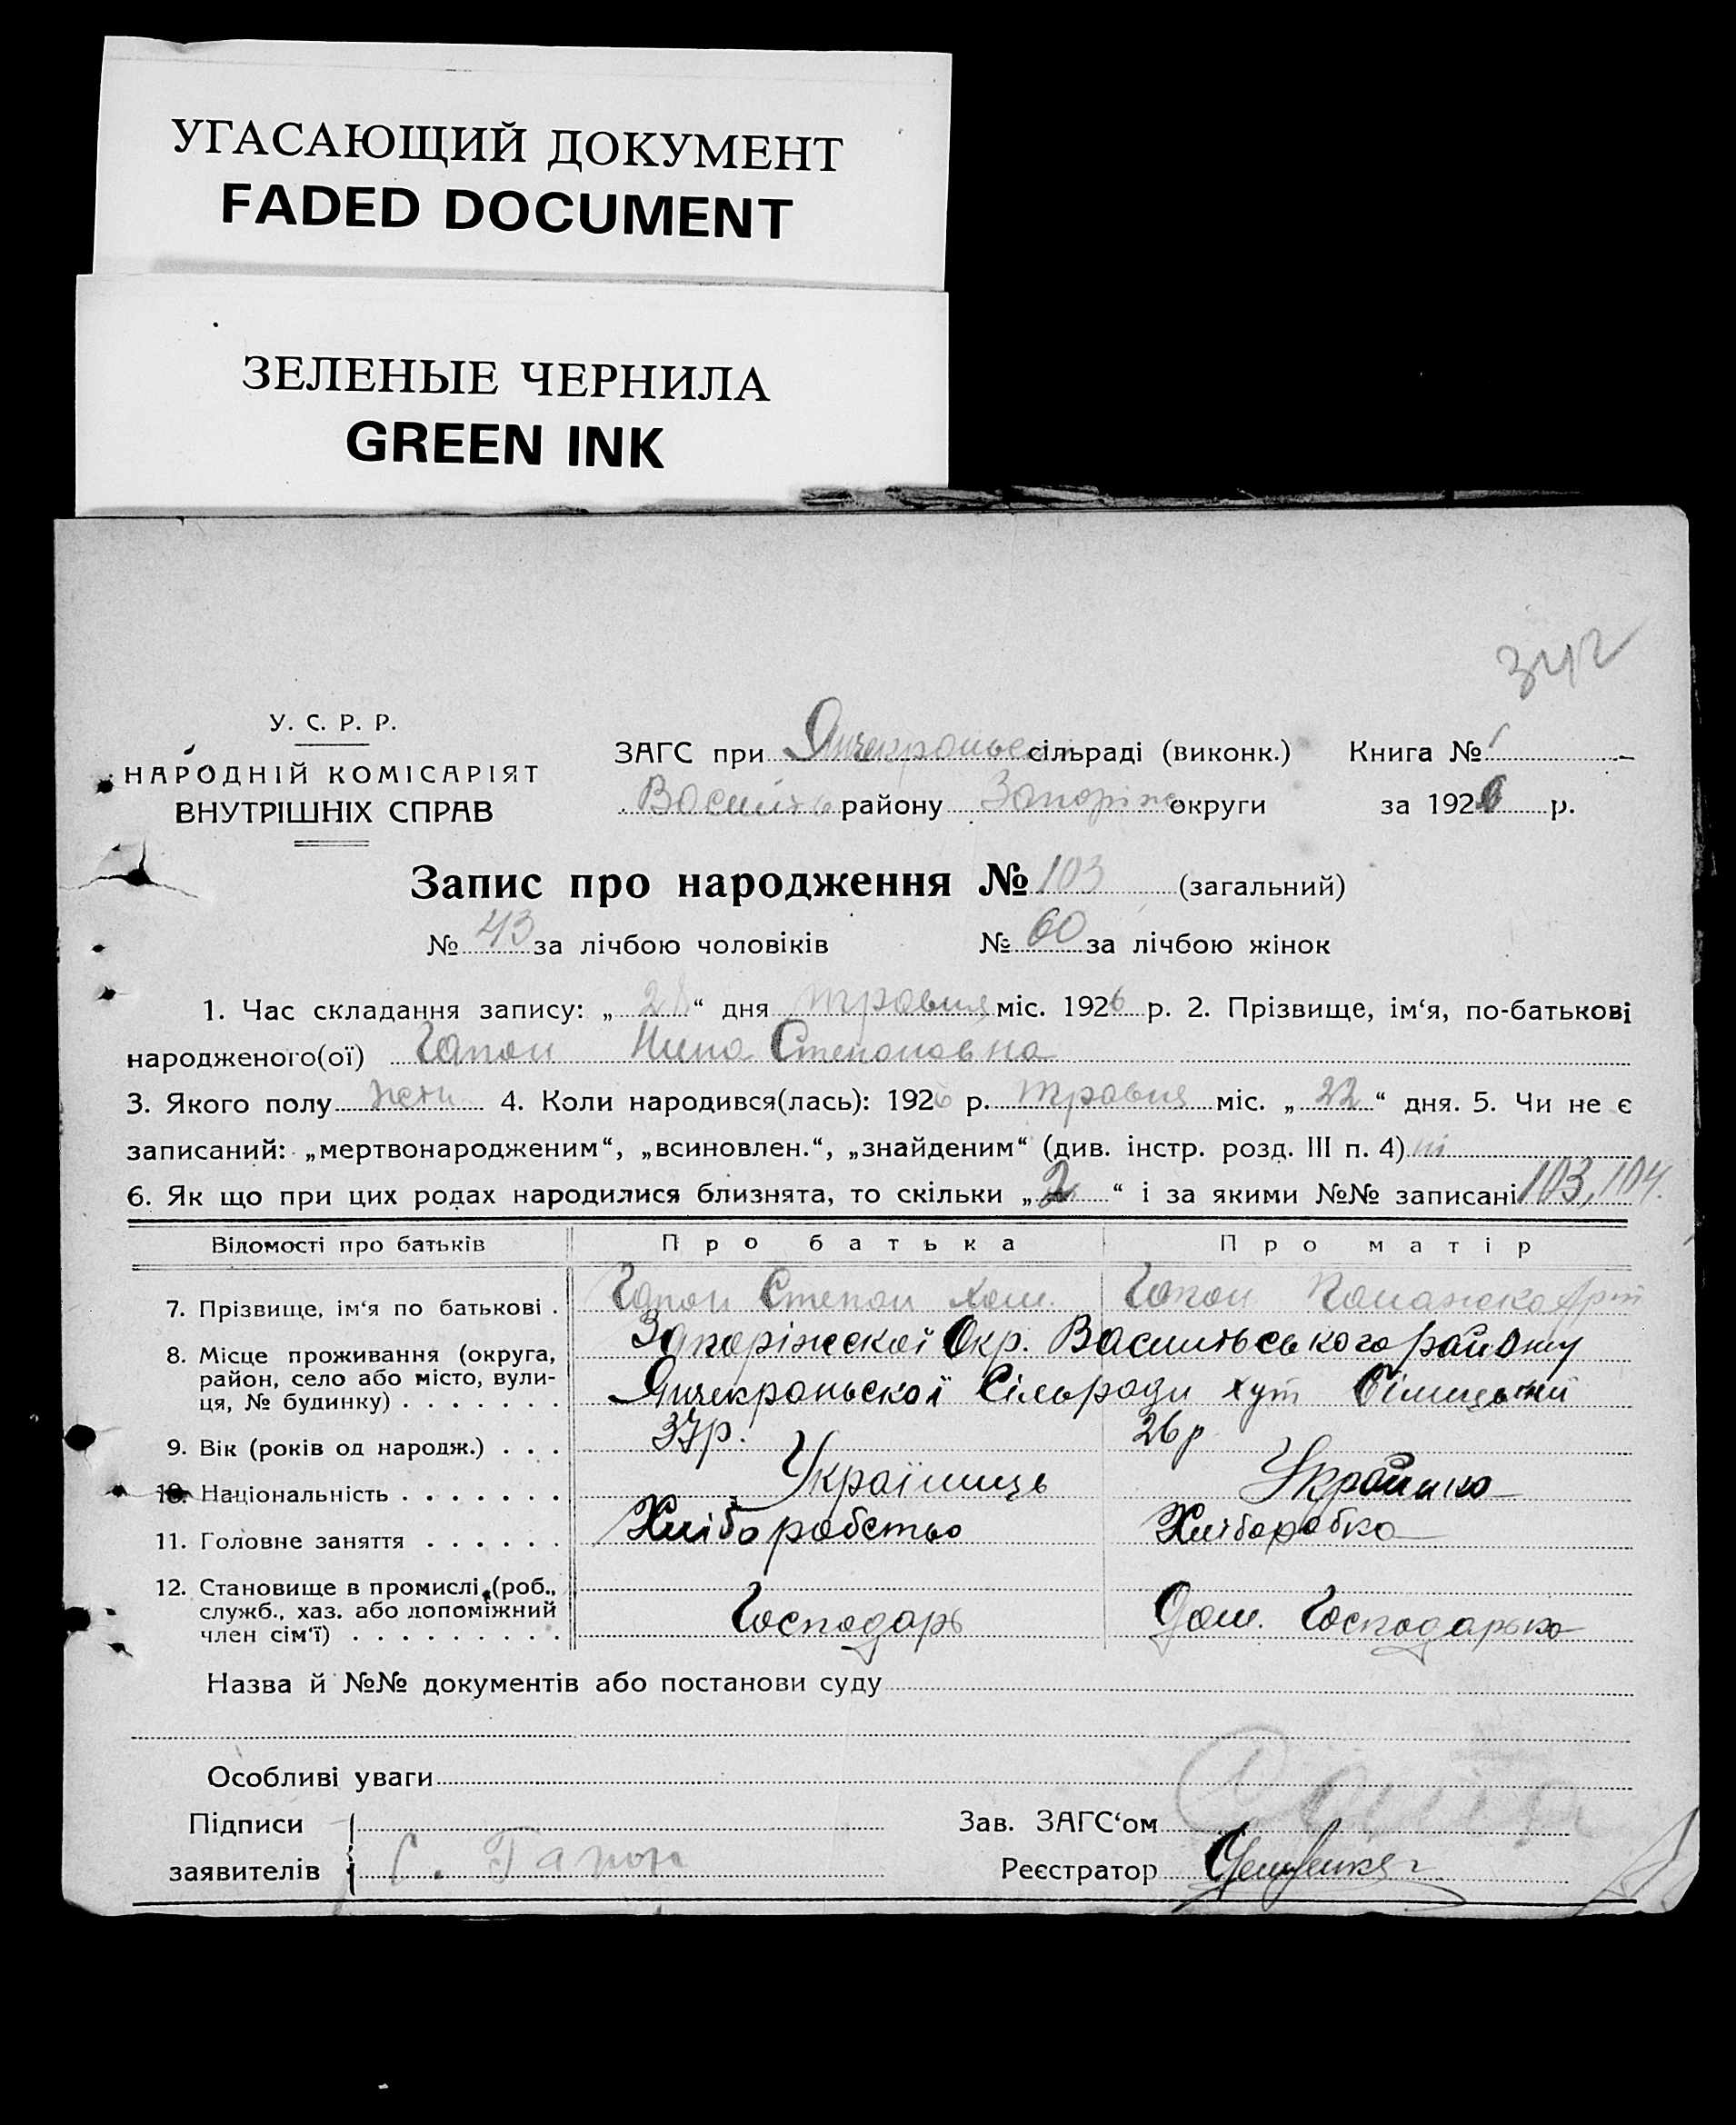 УГАСАЮЩИЙ ДОКУМЕНТ
FADED DOCUMENT
ЗЕЛЕНЫЕ ЧЕРНИЛА
GREEN INK
342
У. С. Р. Р.
НАРОДНІЙ КОМІСАРІЯТ
ВНУТРІШНІХ СПРАВ
ЗАГС при Янчекраньс сільраді (виконк.) Книга № 1
Василів району Запоріж округи за 1926 р.
Запис про народження № 103 (загальний)
№ 43 за лічбою чоловіків № 60 за лічбою жінок
1. Час складання запису: „ 28 “ дня травня міс. 1926 р. 2. Прізвище, ім‘я, по-батькові
народженого(ої) Гапон Нина Степановна
3. Якого полу жен. 4. Коли народився(лась): 1926 р. травня міс. „ 22 “ дня. 5. Чи не є
записаний: „мертвонародженим“, „всиновлен.“, „знайденим“ (див. інстр. розд. III п. 4) ні
6. Як що при цих родах народилися близнята, то скільки „ 2 “ і за якими №№ записані 103, 104.
Відомості про батьків Про батька Про матір
7. Прізвище, ім‘я по батькові . Гапон Степан Хом. Гапон
8. Місце проживання (округа, район, село або місто, вулиця, № будинку) . . . . . . . Запоріжскої Окр. Василівського району
Янчекраньскої Сільради хут
9. Вік (років од народж.) . . . 37р. 26р
10. Національність . . . . . . . Україниць Украинка
11. Головне заняття . . . . . . Хліборобство Хліборобка
12. Становище в промислі (роб., служб., хаз. або допоміжний член сім‘ї) . . . . . . . . . Господарь Дом. Господарька
Назва й №№ документів або постанови суду
Особливі уваги
Підписи
заявителів С. Гапон
Зав. ЗАГС‘ом
Реєстратор